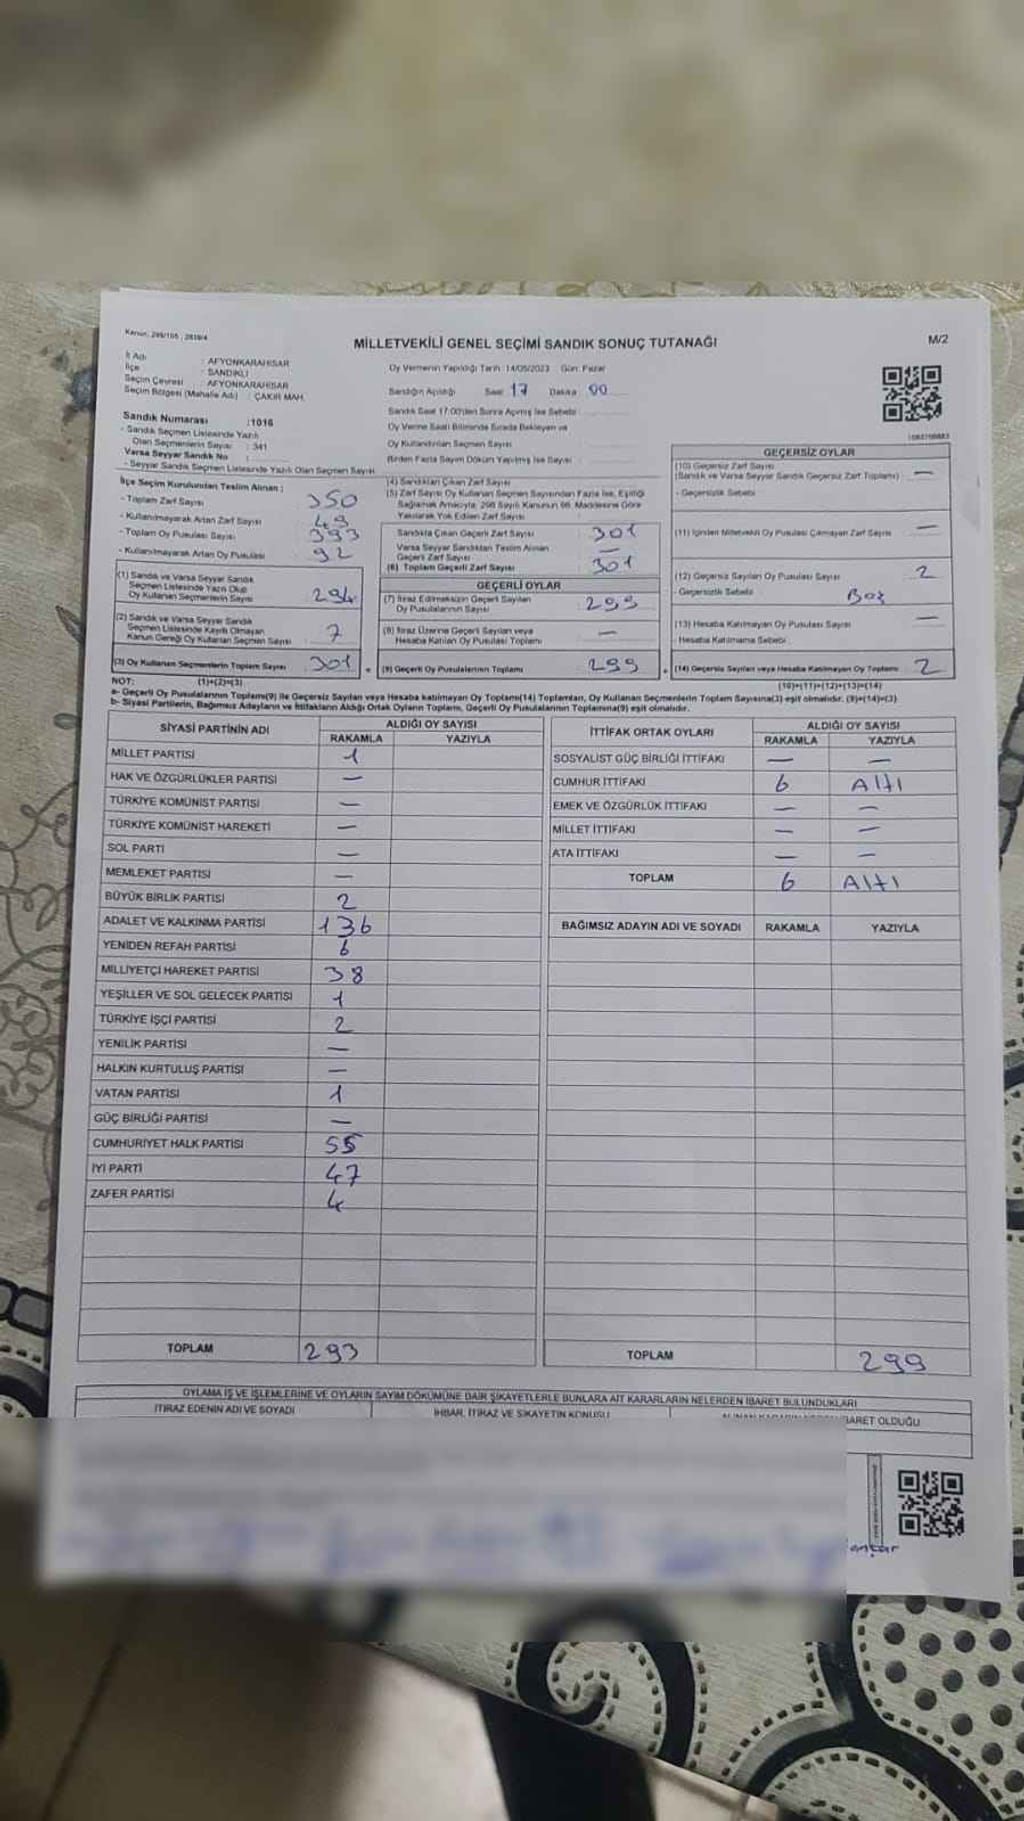 Kanun: 298/105 , 2839/4
MİLLETVEKİLİ GENEL SEÇİMİ SANDIK SONUÇ TUTANAĞI
M/2
İl Adı : AFYONKARAHİSAR
İlçe : SANDIKLI
Seçim Çevresi : AFYONKARAHİSAR
Seçim Bölgesi (Mahalle Adı) : ÇAKIR MAH.
Oy Vermenin Yapıldığı Tarih :14/05/2023 Gün: Pazar
Sandığın Açıldığı Saat 17 Dakika 00
Sandık Saat 17:00'den Sonra Açılmış İse Sebebi :
Oy Verme Saati Bitiminde Sırada Bekleyen ve
Oy Kullandırılan Seçmen Sayısı
Birden Fazla Sayım Döküm Yapılmış İse Sayısı :
Sandık Numarası :1016
- Sandık Seçmen Listesinde Yazılı
Olan Seçmenlerin Sayısı : 341
Varsa Seyyar Sandık No :
- Seyyar Sandık Seçmen Listesinde Yazılı Olan Seçmen Sayısı
İlçe Seçim Kurulundan Teslim Alınan :
- Toplam Zarf Sayısı 350
- Kullanılmayarak Artan Zarf Sayısı 49
- Toplam Oy Pusulası Sayısı 393
- Kullanılmayarak Artan Oy Pusulası 92
(1) Sandık ve Varsa Seyyar Sandık
Seçmen Listesinde Yazılı Olup
Oy Kullanan Seçmenlerin Sayısı 294
(2) Sandık ve Varsa Seyyar Sandık
Seçmen Listesinde Kayıtlı Olmayan
Kanun Gereği Oy Kullanan Seçmen Sayısı 7
(3) Oy Kullanan Seçmenlerin Toplam Sayısı 301
(4) Sandıktan Çıkan Zarf Sayısı
(5) Zarf Sayısı Oy Kullanan Seçmen Sayısından Fazla İse, Eşitliği
Sağlamak Amacıyla, 298 Sayılı Kanunun 98. Maddesine Göre
Yakılarak Yok Edilen Zarf Sayısı
Sandıkta Çıkan Geçerli Zarf Sayısı 301
Varsa Seyyar Sandıktan Teslim Alınan
Geçerli Zarf Sayısı —
(6) Toplam Geçerli Zarf Sayısı 301
GEÇERLİ OYLAR
(7) İtiraz Edilmeksizin Geçerli Sayılan
Oy Pusulalarının Sayısı 299
(8) İtiraz Üzerine Geçerli Sayılan veya
Hesaba Katılan Oy Pusulası Toplamı —
(9) Geçerli Oy Pusulalarının Toplamı 299
GEÇERSİZ OYLAR
(10) Geçersiz Zarf Sayısı
(Sandık ve Varsa Seyyar Sandık Geçersiz Zarf Toplamı) —
- Geçersizlik Sebebi
(11) İçinden Milletvekili Oy Pusulası Çıkmayan Zarf Sayısı —
(12) Geçersiz Sayılan Oy Pusulası Sayısı 2
- Geçersizlik Sebebi Boş
(13) Hesaba Katılmayan Oy Pusulası Sayısı —
- Hesaba Katılmama Sebebi
(14) Geçersiz Sayılan veya Hesaba Katılmayan Oy Toplamı 2
NOT: (1)+(2)=(3) (10)+(11)+(12)+(13)=(14)
a- Geçerli Oy Pusulalarının Toplamı(9) ile Geçersiz Sayılan veya Hesaba katılmayan Oy Toplamı(14) Toplamları, Oy Kullanan Seçmenlerin Toplam Sayısına(3) eşit olmalıdır. (9)+(14)=(3)
b- Siyasi Partilerin, Bağımsız Adayların ve İttifakların Aldığı Ortak Oyların Toplamı, Geçerli Oy Pusulalarının Toplamına(9) eşit olmalıdır.
SİYASİ PARTİNİN ADI ALDIĞI OY SAYISI
RAKAMLA YAZIYLA
MİLLET PARTİSİ 1
HAK VE ÖZGÜRLÜKLER PARTİSİ —
TÜRKİYE KOMÜNİST PARTİSİ —
TÜRKİYE KOMÜNİST HAREKETİ —
SOL PARTİ —
MEMLEKET PARTİSİ —
BÜYÜK BİRLİK PARTİSİ 2
ADALET VE KALKINMA PARTİSİ 136
YENİDEN REFAH PARTİSİ 6
MİLLİYETÇİ HAREKET PARTİSİ 38
YEŞİLLER VE SOL GELECEK PARTİSİ 1
TÜRKİYE İŞÇİ PARTİSİ 2
YENİLİK PARTİSİ —
HALKIN KURTULUŞ PARTİSİ —
VATAN PARTİSİ 1
GÜÇ BİRLİĞİ PARTİSİ —
CUMHURİYET HALK PARTİSİ 55
İYİ PARTİ 47
ZAFER PARTİSİ 4
TOPLAM 293
İTTİFAK ORTAK OYLARI ALDIĞI OY SAYISI
RAKAMLA YAZIYLA
SOSYALİST GÜÇ BİRLİĞİ İTTİFAKI — —
CUMHUR İTTİFAKI 6 Altı
EMEK VE ÖZGÜRLÜK İTTİFAKI — —
MİLLET İTTİFAKI — —
ATA İTTİFAKI — —
TOPLAM 6 Altı
BAĞIMSIZ ADAYIN ADI VE SOYADI RAKAMLA YAZIYLA
TOPLAM 299
OYLAMA İŞ VE İŞLEMLERİNE VE OYLARIN SAYIM DÖKÜMÜNE DAİR ŞİKAYETLERLE BUNLARA AİT KARARLARIN NELERDEN İBARET BULUNDUKLARI
İTİRAZ EDENİN ADI VE SOYADI İHBAR, İTİRAZ VE ŞİKAYETİN KONUSU